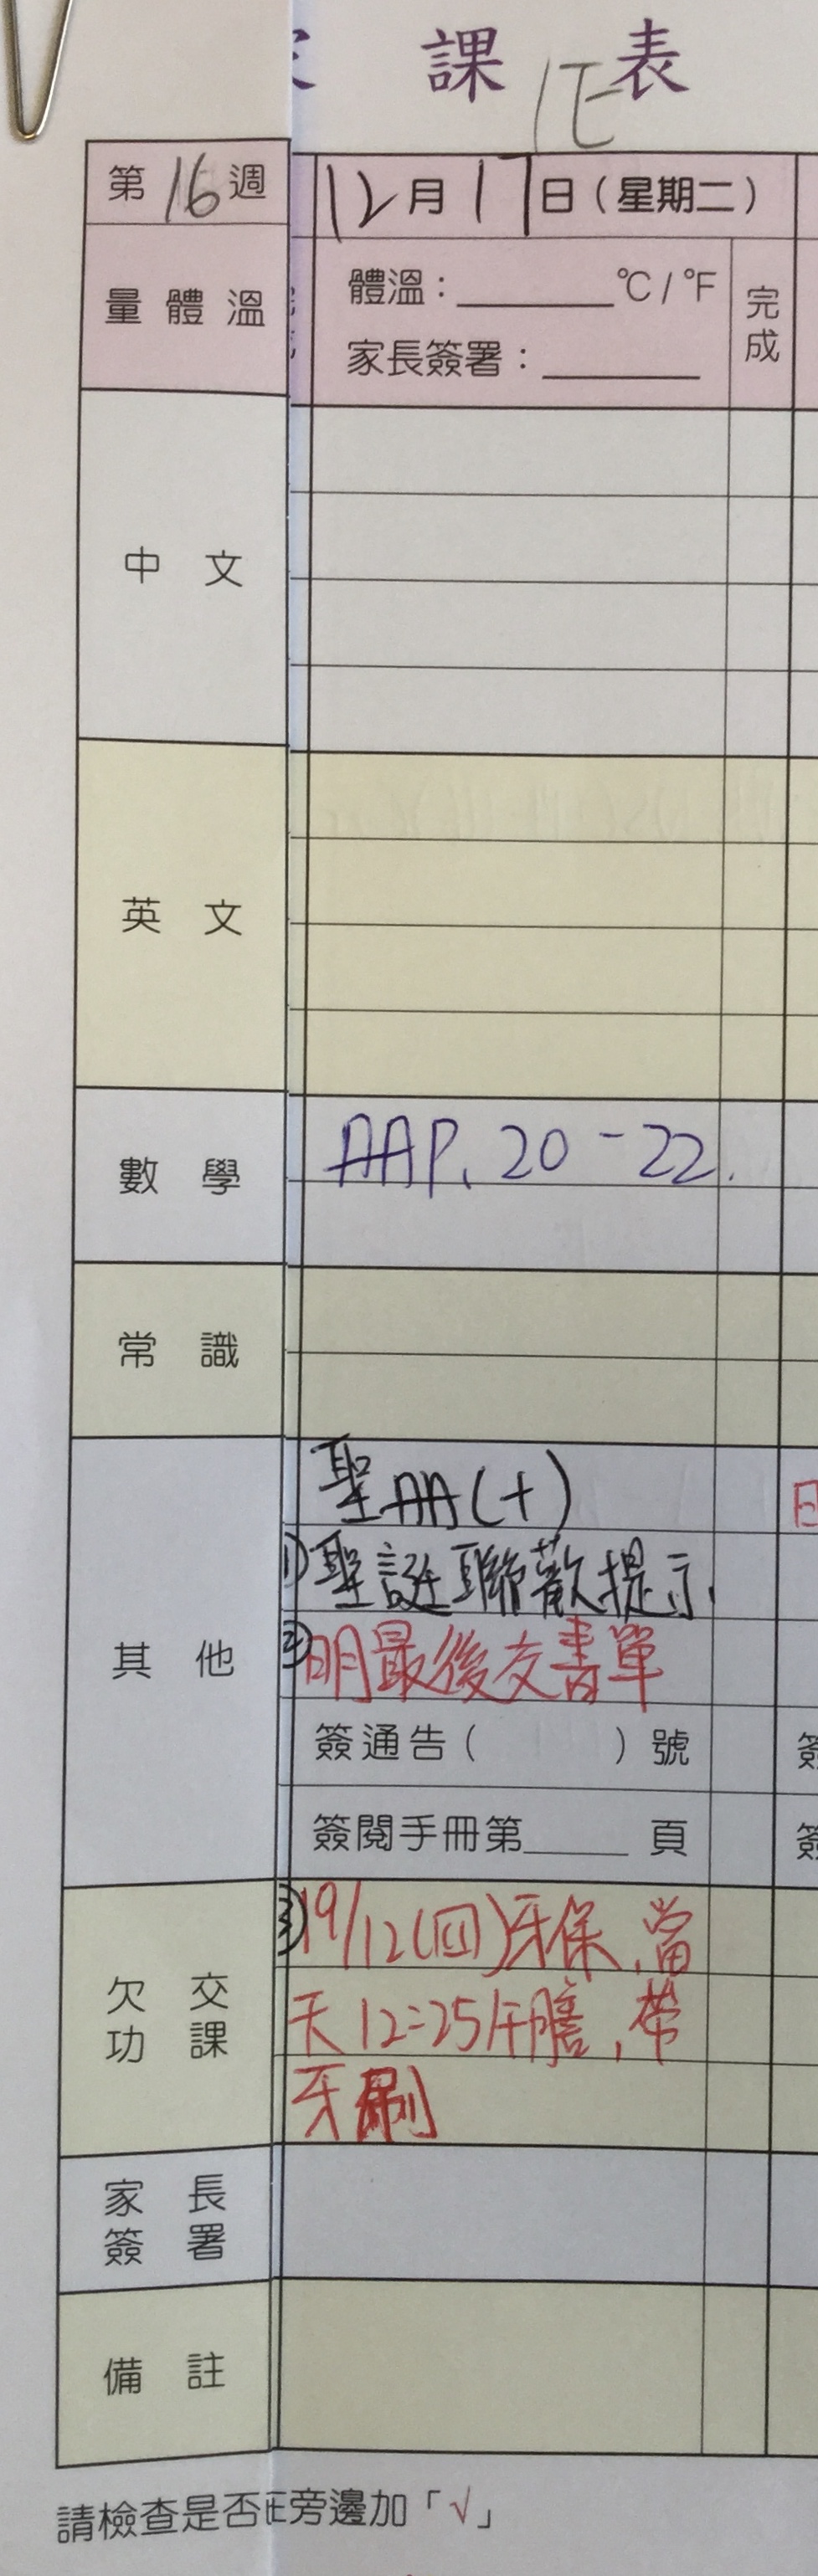 課 表
1E
第16週
12月17日(星期二)
量體溫
體溫:______°C/°F
完成
家長簽署:______
中文
英文
數學
AAP. 20-22.
常識
其他
聖AA(+)
①聖誕聯歡提示
②明最後交書單
簽通告( )號
簽閱手冊第____頁
欠交功課
③19/12(四)牙保,當
天12:25午膳,帶
牙刷
家長簽署
備註
請檢查是否
旁邊加「√」